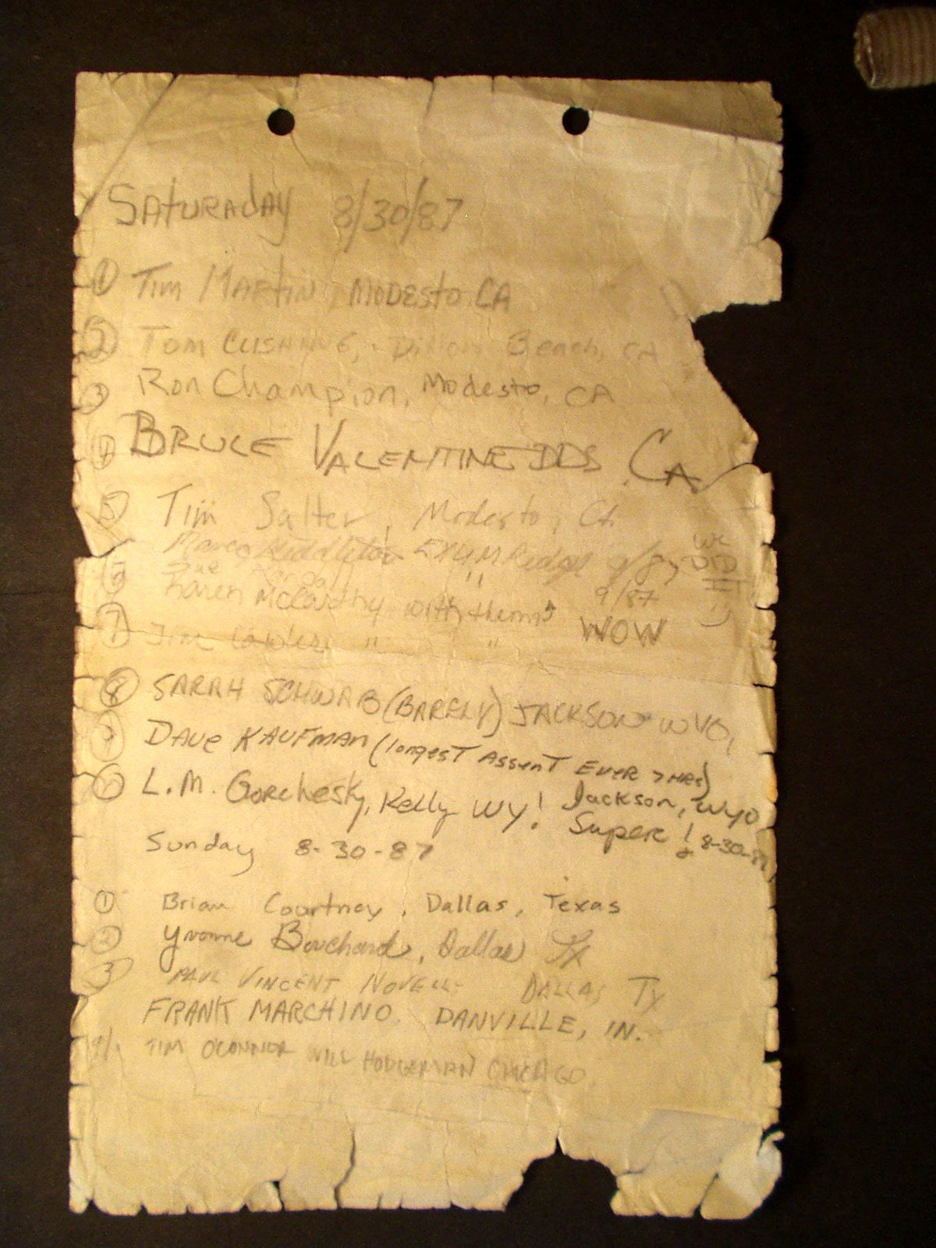 SATURADAY 8/30/87
① TIM MARTIN, MODESTO CA
② TOM Beach, CA
③ Ron Champion, Modesto, CA
④ BRUCE VALENTINE DDS CA
⑤ Tim Salter, Modesto, CA
Middleton Ridge 9/87 WE DID IT
Karen McCarthy with them 9/87
⑦ Jim " " WOW
⑧ SARAH SCHWAB (BARELY) JACKSON WYO,
DAVE KAUFMAN (longest Assent EVER 7 HRS)
L.M. Gorchesky, Kelly WY! Jackson, WYO
Super! 8-30-87
Sunday 8-30-87
① Brian Courtney, Dallas, Texas
② Yvonne Bouchard, Dallas Tx
③ PAUL VINCENT DALLAS Tx
FRANK MARCHINO. DANVILLE, IN.
TIM OCONNOR WILL HODGEMAN CHICAGO